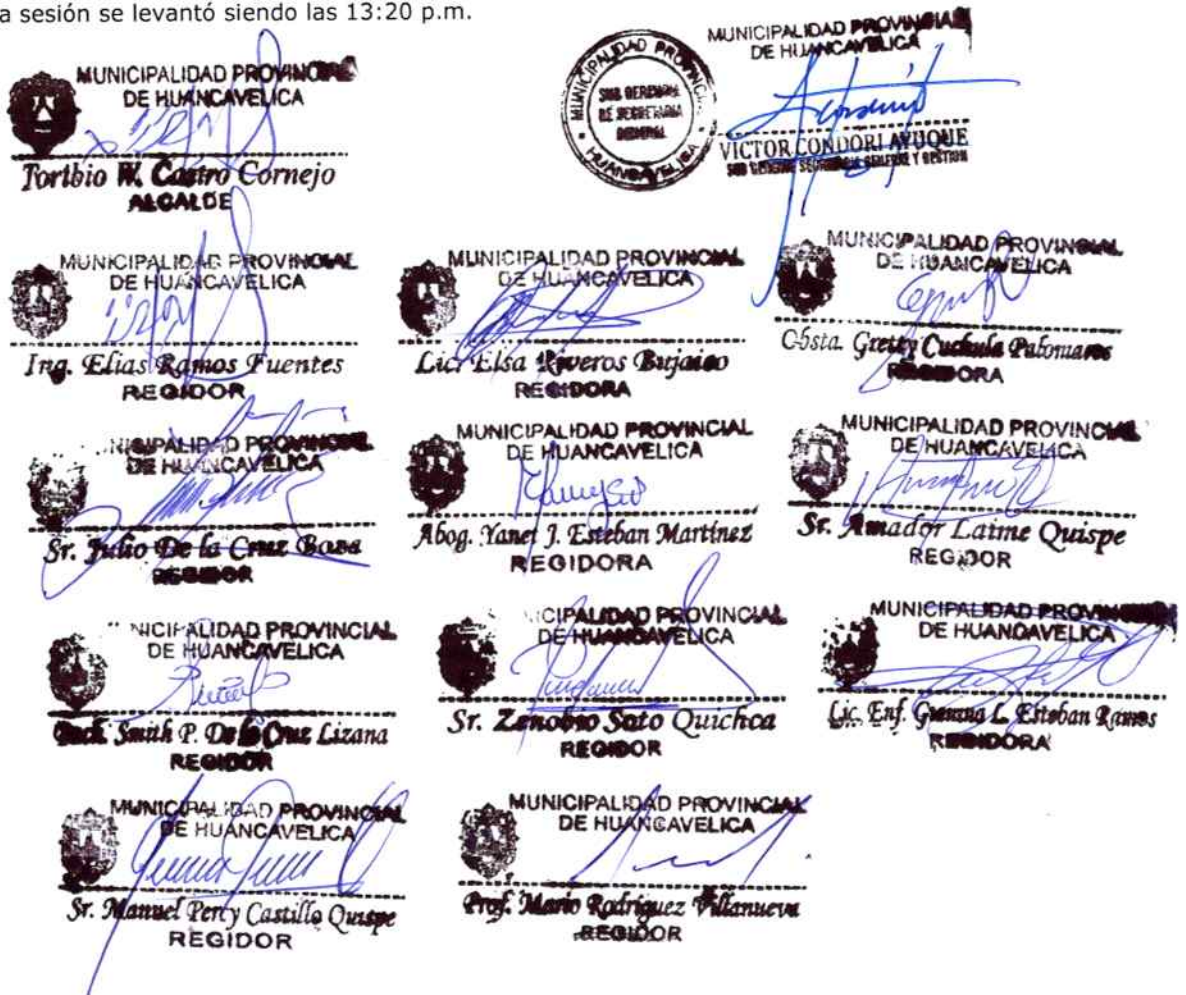 a sesión se levantó siendo las 13:20 p.m.
MUNICIPALIDAD PROVINCIAL
DE HUANCAVELICA
Toribio W. Castro Cornejo
ALCALDE
MUNICIPALIDAD PROVINCIAL
SUB GERENCIA
DE SECRETARIA
GENERAL
HUANCAVELICA
MUNICIPALIDAD PROVINCIAL
DE HUANCAVELICA
VICTOR CONDORI AYUQUE
MUNICIPALIDAD PROVINCIAL
DE HUANCAVELICA
Ing. Elias Ramos Fuentes
REGIDOR
MUNICIPALIDAD PROVINCIAL
DE HUANCAVELICA
Lic. Elsa Riveros Bujaico
REGIDORA
MUNICIPALIDAD PROVINCIAL
DE HUANCAVELICA
Obsta. Gretty Cuchula Palomares
REGIDORA
NICIPALIDAD PROVINCIAL
DE HUANCAVELICA
Sr. Julio De la Cruz
REGIDOR
MUNICIPALIDAD PROVINCIAL
DE HUANCAVELICA
Abog. Yanet J. Esteban Martínez
REGIDORA
MUNICIPALIDAD PROVINCIAL
DE HUANCAVELICA
Sr. Amador Laime Quispe
REGIDOR
NICIPALIDAD PROVINCIAL
DE HUANCAVELICA
Bach. Smith P. De la Cruz Lizana
REGIDOR
ICIPALIDAD PROVINCIAL
DE HUANCAVELICA
Sr. Zenobio Soto Quichca
REGIDOR
MUNICIPALIDAD PROVINCIAL
DE HUANCAVELICA
Lic. Enf. L. Esteban Ramos
REGIDORA
MUNICIPALIDAD PROVINCIAL
DE HUANCAVELICA
Sr. Manuel Percy Castillo Quispe
REGIDOR
MUNICIPALIDAD PROVINCIAL
DE HUANCAVELICA
Prof. Mario Rodríguez Villanueva
REGIDOR